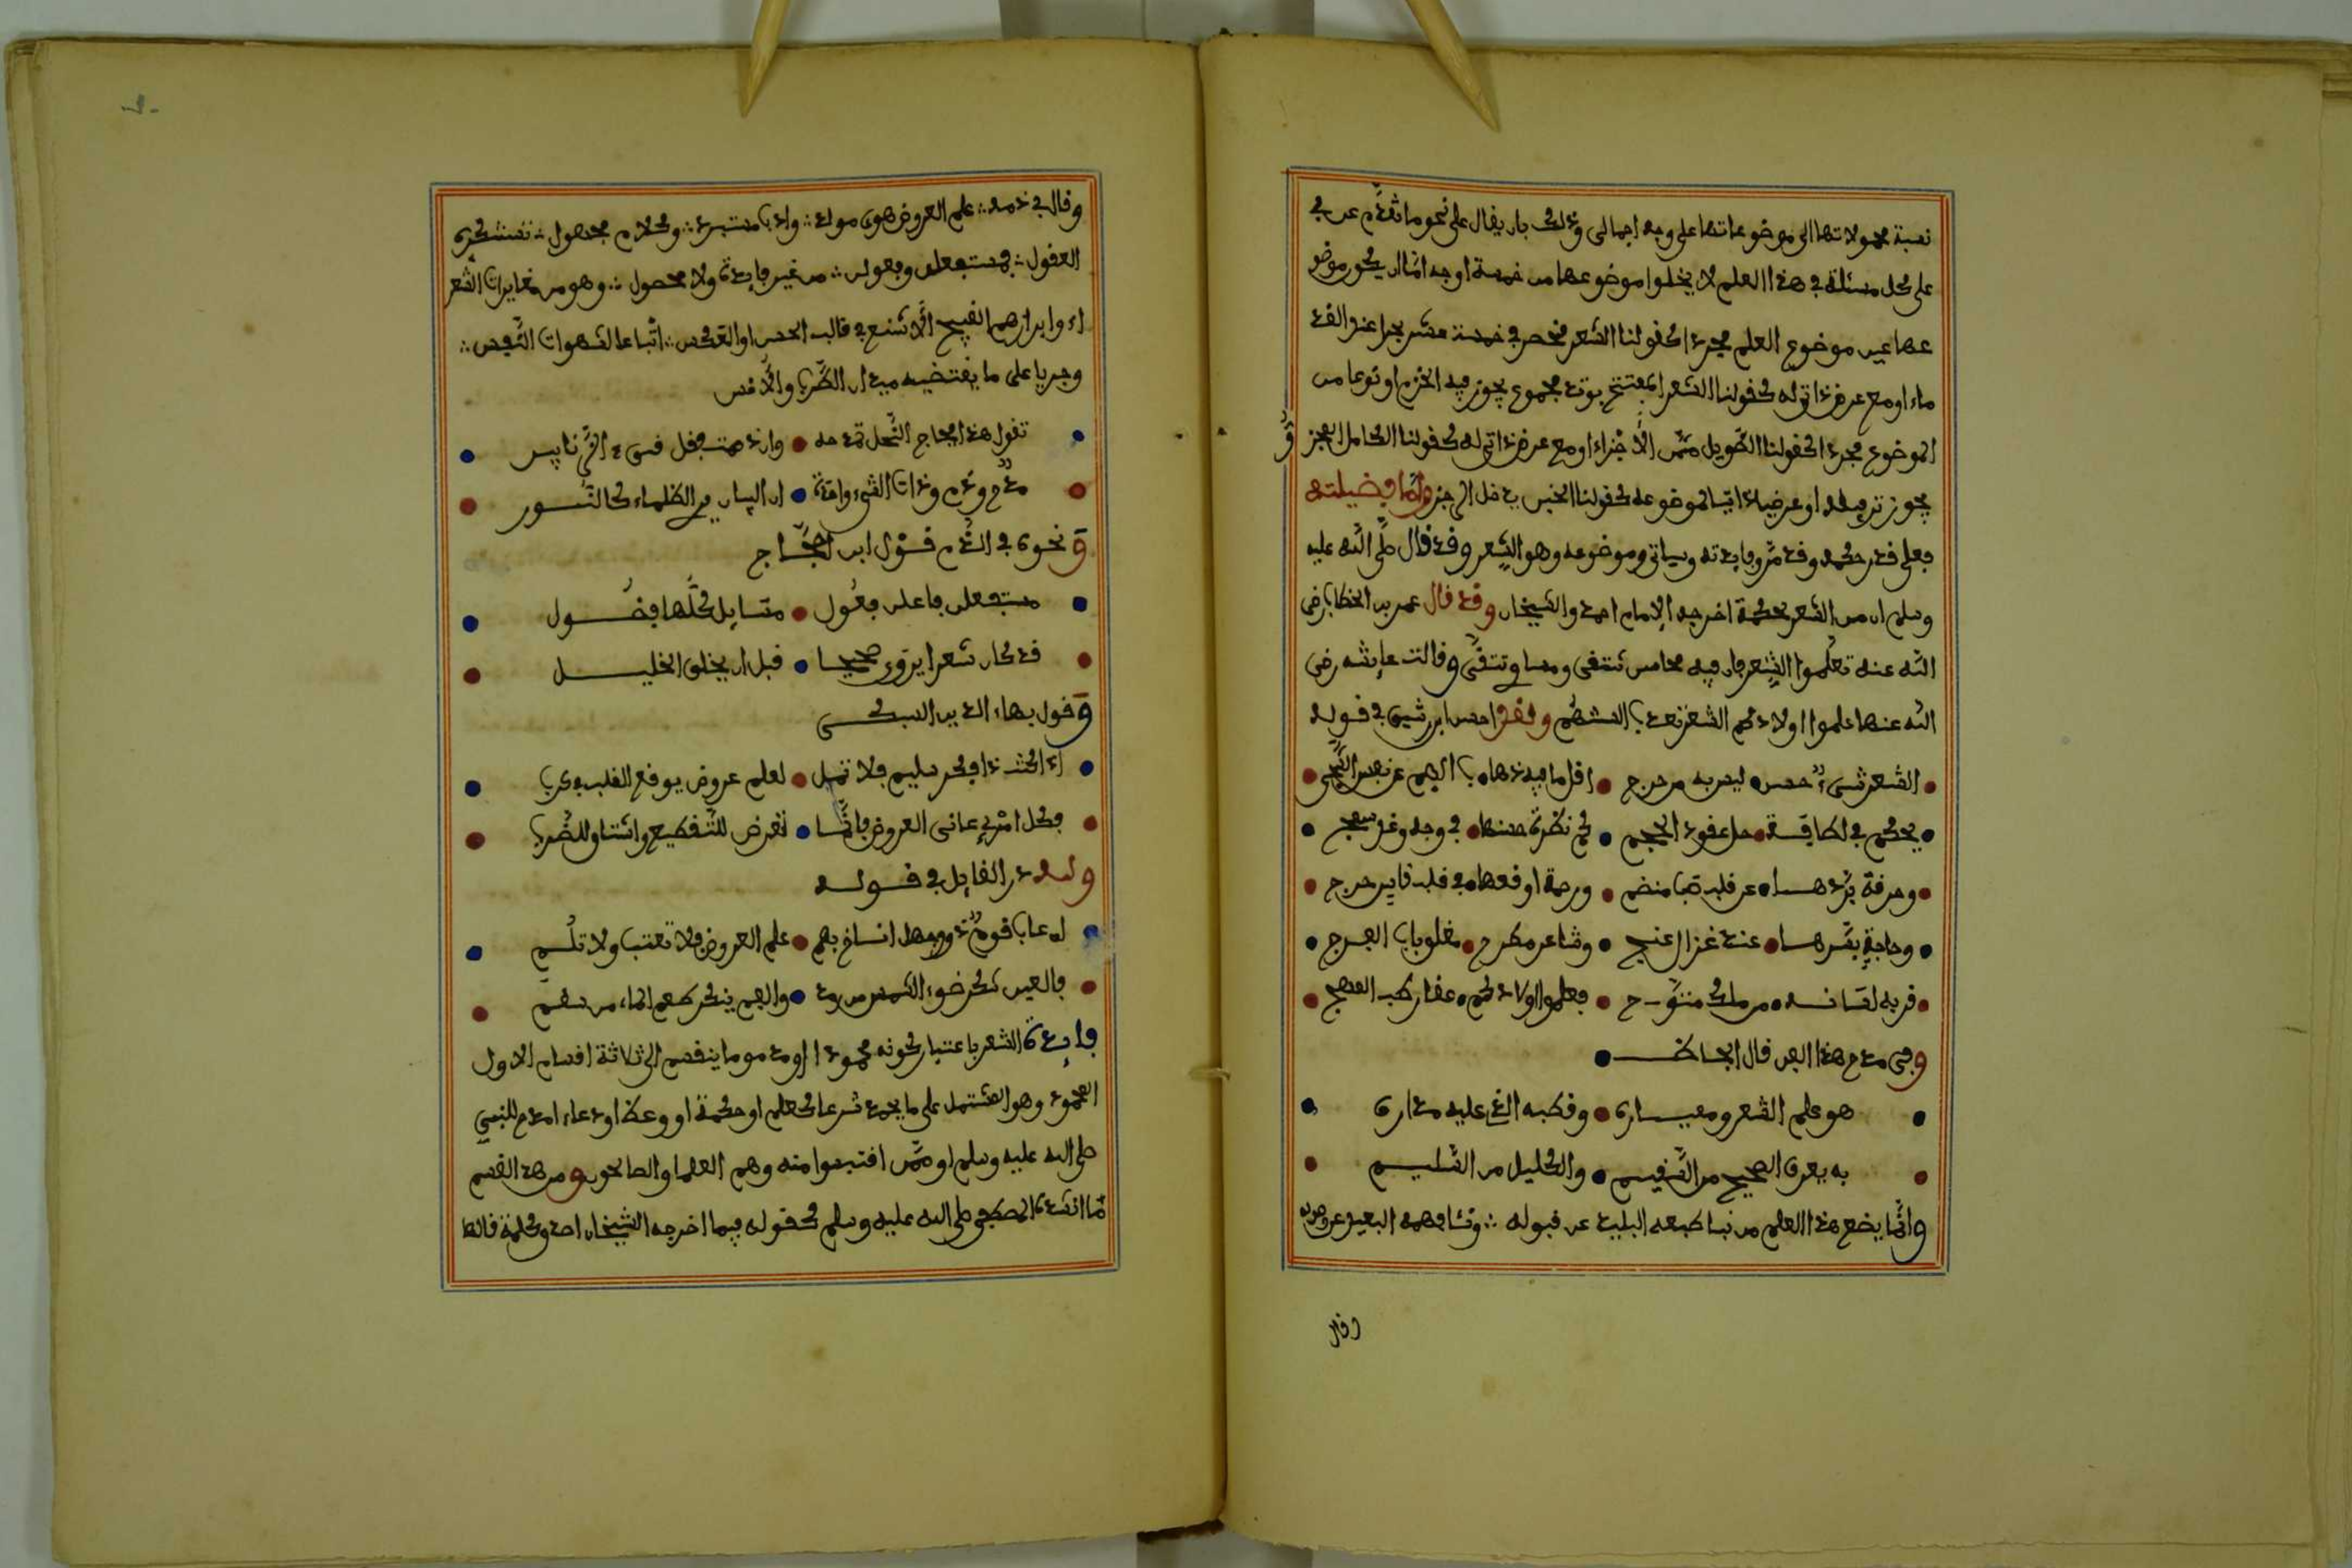 نسبة محمولاتها الى موضوعاتها على وجه اجمالى وذلك بان يقال على نحو ما تقدم عن
على كل مسئلة في هذا العلم لا يخلوا موضوعها من خمسة اوجه اما ان يكون موضو
عها عين موضوع العلم مجردا كقولنا الشعر منحصر في خمسة عشر بحرا عند القد
ماء او مع عرض ذاتي له كقولنا الشعر المفتتح بوتد مجموع يجوز فيه الخرم او نوعا من
الموضوع مجردا كقولنا الطويل مثمن الأجزاء او مع عرض ذاتي له كقولنا الكامل
يجوز ترفيله او عرضا ذاتيا لموضوعه كقولنا الخبن يدخل الرجز واما فضيلته
فعلى قدر حكمه وقد مر وفايدته وسياتي وموضوعه وهو الشعر وقد قال صلى الله عليه
وسلم ان من الشعر حكمة اخرجه الامام احمد والشيخان وقد قال عمر بن الخطاب رضي
الله عنه تعلموا الشعر فان فيه محاسن تبتغى ومساوي تتقى وقالت عايشه رضي
الله عنها علموا اولادكم الشعر تعذب السنتهم ولقد احسن ابن رشيق في قوله
الشعر شيء حسن ليس به من حرج اقل ما فيه ذهاب الهم عن نفس الشجي
يحكم في لطافة حل عقود الحجج كم نظرة حسنها في وجه وغد سمج
وحرقة بردها عن قلب صب منضج ورحمة اوقعها في قلب قاس حرج
وحاجة يسرها عند غزال غنج وشاعر مطرح مغلق باب الفرج
قربه لسانه من ملك متوج فعلموا اولادكم عقار طب المهج
وفي مدح هذا الفن قال الجاحظ
هو علم الشعر ومعياره وقطبه الذي عليه مداره
به يعرف الصحيح من السقيم والعليل من السليم
وانما يضع هذا العلم من نبا طبعه البليد عن قبوله وننا فهمه البعيد عن وصوله
وقال
وقال في ذمه علم العروض هوى مولد وادب مستبرد وكلام مجهول تستنكره
العقول بمستفعلن وفعولن من غير فايدة ولا محصول وهو من مغايرات الشعر
اء وابرازهم القبيح الأشنع في قالب الحسن او العكس اتباعا لشهوات النفس
وجريا على ما يقتضيه ميدان الطرب والأنس
تقول هذا مجاج النحل تمدحه وان ذممت فقل قيء الزنابير
مدح وذم وذات الشيء واحدة ان البيان يري الظلماء كالنور
ونحوه في الذم قول ابن الحجاج
مستفعلن فاعلن فعول مسايل كلها فضول
قد كان شعرا يروى صحيحا قبل ان يخلق الخليل
وقول بهاء الدين السبكي
اذا كنت ذا فكر سليم فلا تمل لعلم عروض يوقع القلب في كرب
فكل امرئ عانى العروض فانما تعرض للتقطيع وانساق للضرب
ولله در القايل في قوله
ان عاب قوم ذوو جهل انساخ بهم علم العروض فلا تعتب ولا تلم
فالعين تنكر ضوء الشمس من رمد والفم ينكر طعم الماء من سقم
فايدة الشعر باعتبار كونه محمودا او مذموما ينقسم الى ثلاثة اقسام الاول
المحمود وهو المشتمل على ما يحمد شرعا كعلم او حكمة او وعظ او دعاء امدح للنبي
صلى الله عليه وسلم او ممن اقتبسوا منه وهم العلما والصالحون ومن هذا القسم
ما انشده المصطفى صلى الله عليه وسلم كقوله فيما اخرجه الشيخان اصدق كلمة قالها